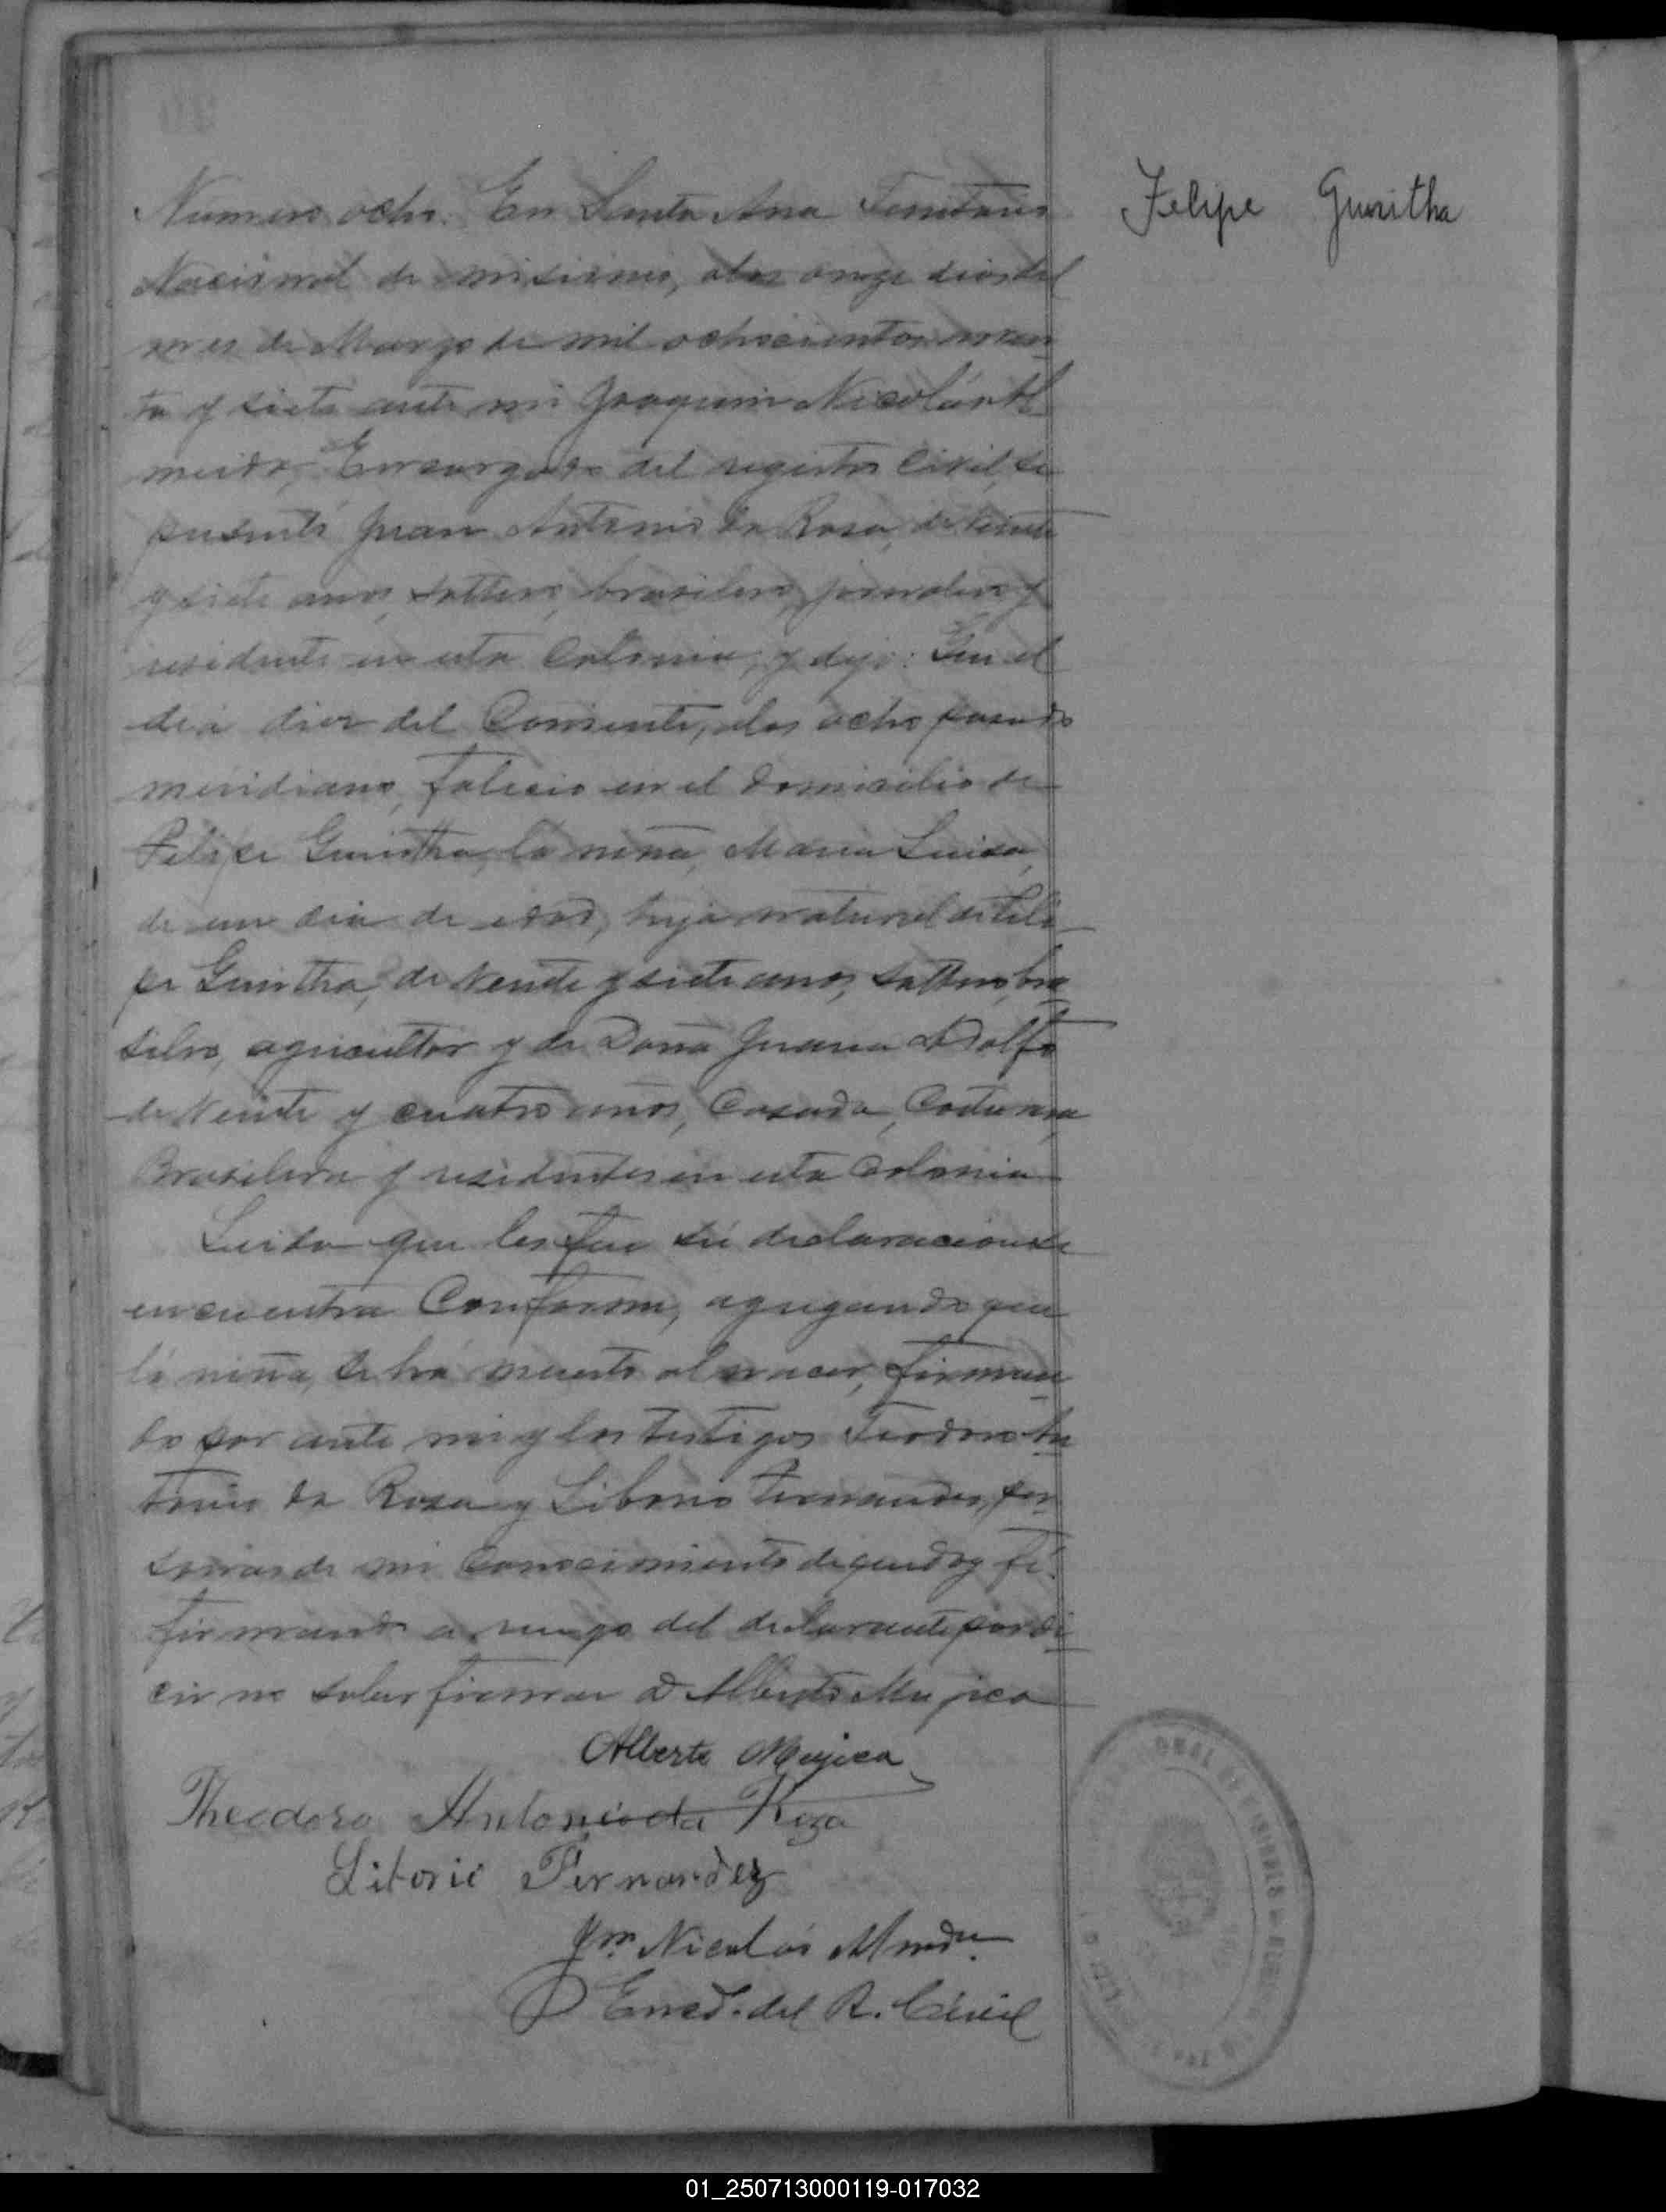 Numero ocho. En Santa Ana Territorio
Nacional de misiones, alos onze dias del
mes de Marzo de mil ochocientos noven
ta y siete ante mi Joaquin Nicolás Al
meida, Encargado del registro Civil, se
presentó Juan Antonio da Rosa, de veinte
y siete anos, soltero, brasilero, jornalero y
residente en esta Colonia, y dijo: Que el
dia diez del Corriente, alas ocho pasado
meridiano, falecio en el domicilio de
Felipe Guritha, la niña, Maria Luisa,
de un dia de edad, hija natural de Feli
pe Guritha, de veinte y siete anos, soltero, bra
silero, agricultor y de Doña Juana Adolfo
de Veinte y cuatro años, Casada, Costurera,
Brasilera y residentes en esta Colonia
Leida que les fue sú declaracion se
encuentra Conforme, agregando que
lá niña, se há muerto al nacer, firman
do por ante mi y los testigos Teodoro An
tonio da Rosa y Liborio Fernandes, per
sonas de mi Conocimiento de que doy fé.
firmando a ruego del declarante por di
cir no saber firmar D. Alberto Mujica
Alberto Mujica
Theodoro Antonio da Roza
Liborio Fernandez
Jm. Nicolás Almda.
Encd. del R. Civil
Felipe Guritha
01_250713000119-017032